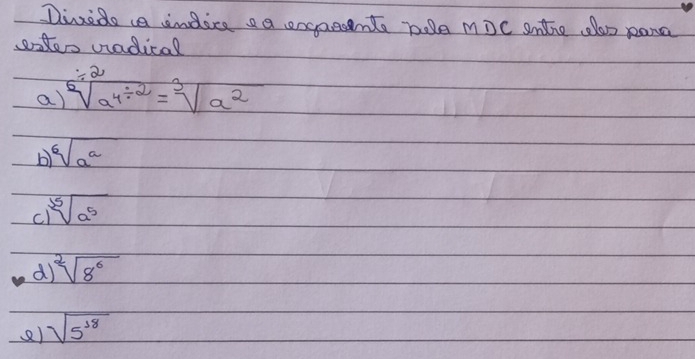 Divide o índice e o expoente pelo MDC entre eles para
estes radical
a) ⁶÷²√a⁴÷² = ³√a²
b) ⁶√aᵃ
c) ¹⁵√a⁵
d) ²√8⁶
e) √5¹⁸